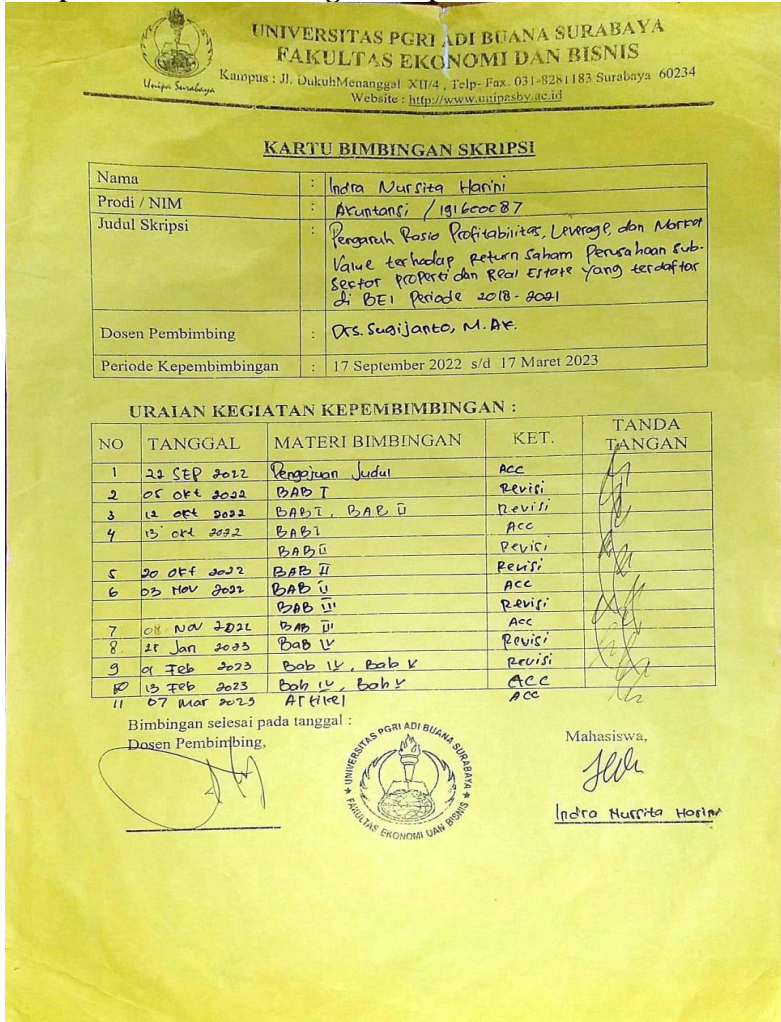 UNIVERSITAS PGRI ADI BUANA SURABAYA
FAKULTAS EKONOMI DAN BISNIS
Kampus : Jl. DukuhMenanggal XII/4 , Telp- Fax. 031-8281183 Surabaya 60234
Website : http://www.unipasby.ac.id
Unipa Surabaya
KARTU BIMBINGAN SKRIPSI
Nama : Indra Nursita Harini
Prodi / NIM : Akuntansi / 191600087
Judul Skripsi : Pengaruh Rasio Profitabilitas, Leverage, dan Market
Value terhadap Return Saham Perusahaan Sub-
Sector Properti dan Real Estate yang terdaftar
di BEI Periode 2018-2021
Dosen Pembimbing : Drs. Sugijanto, M. Ak.
Periode Kepembimbingan : 17 September 2022 s/d 17 Maret 2023
URAIAN KEGIATAN KEPEMBIMBINGAN :
NO TANGGAL MATERI BIMBINGAN KET. TANDA TANGAN
1 22 SEP 2022 Pengajuan Judul Acc
2 05 Okt 2022 BAB I Revisi
3 12 okt 2022 BAB I, BAB II Revisi
4 13 okt 2022 BAB I Acc
BAB II Revisi
5 20 okt 2022 BAB II Revisi
6 03 Nov 2022 BAB II Acc
BAB III Revisi
7 08 NOV 2022 BAB III Acc
8. Jan 2023 Bab IV Revisi
9 Feb 2023 Bab IV, Bab V Revisi
10 13 Feb 2023 Bab IV, Bab V ACC
11 07 Mar 2023 Artikel ACC
Bimbingan selesai pada tanggal :
Dosen Pembimbing,
UNIVERSITAS PGRI ADI BUANA SURABAYA
FAKULTAS EKONOMI DAN BISNIS
Mahasiswa,
Indra Nursita Harini